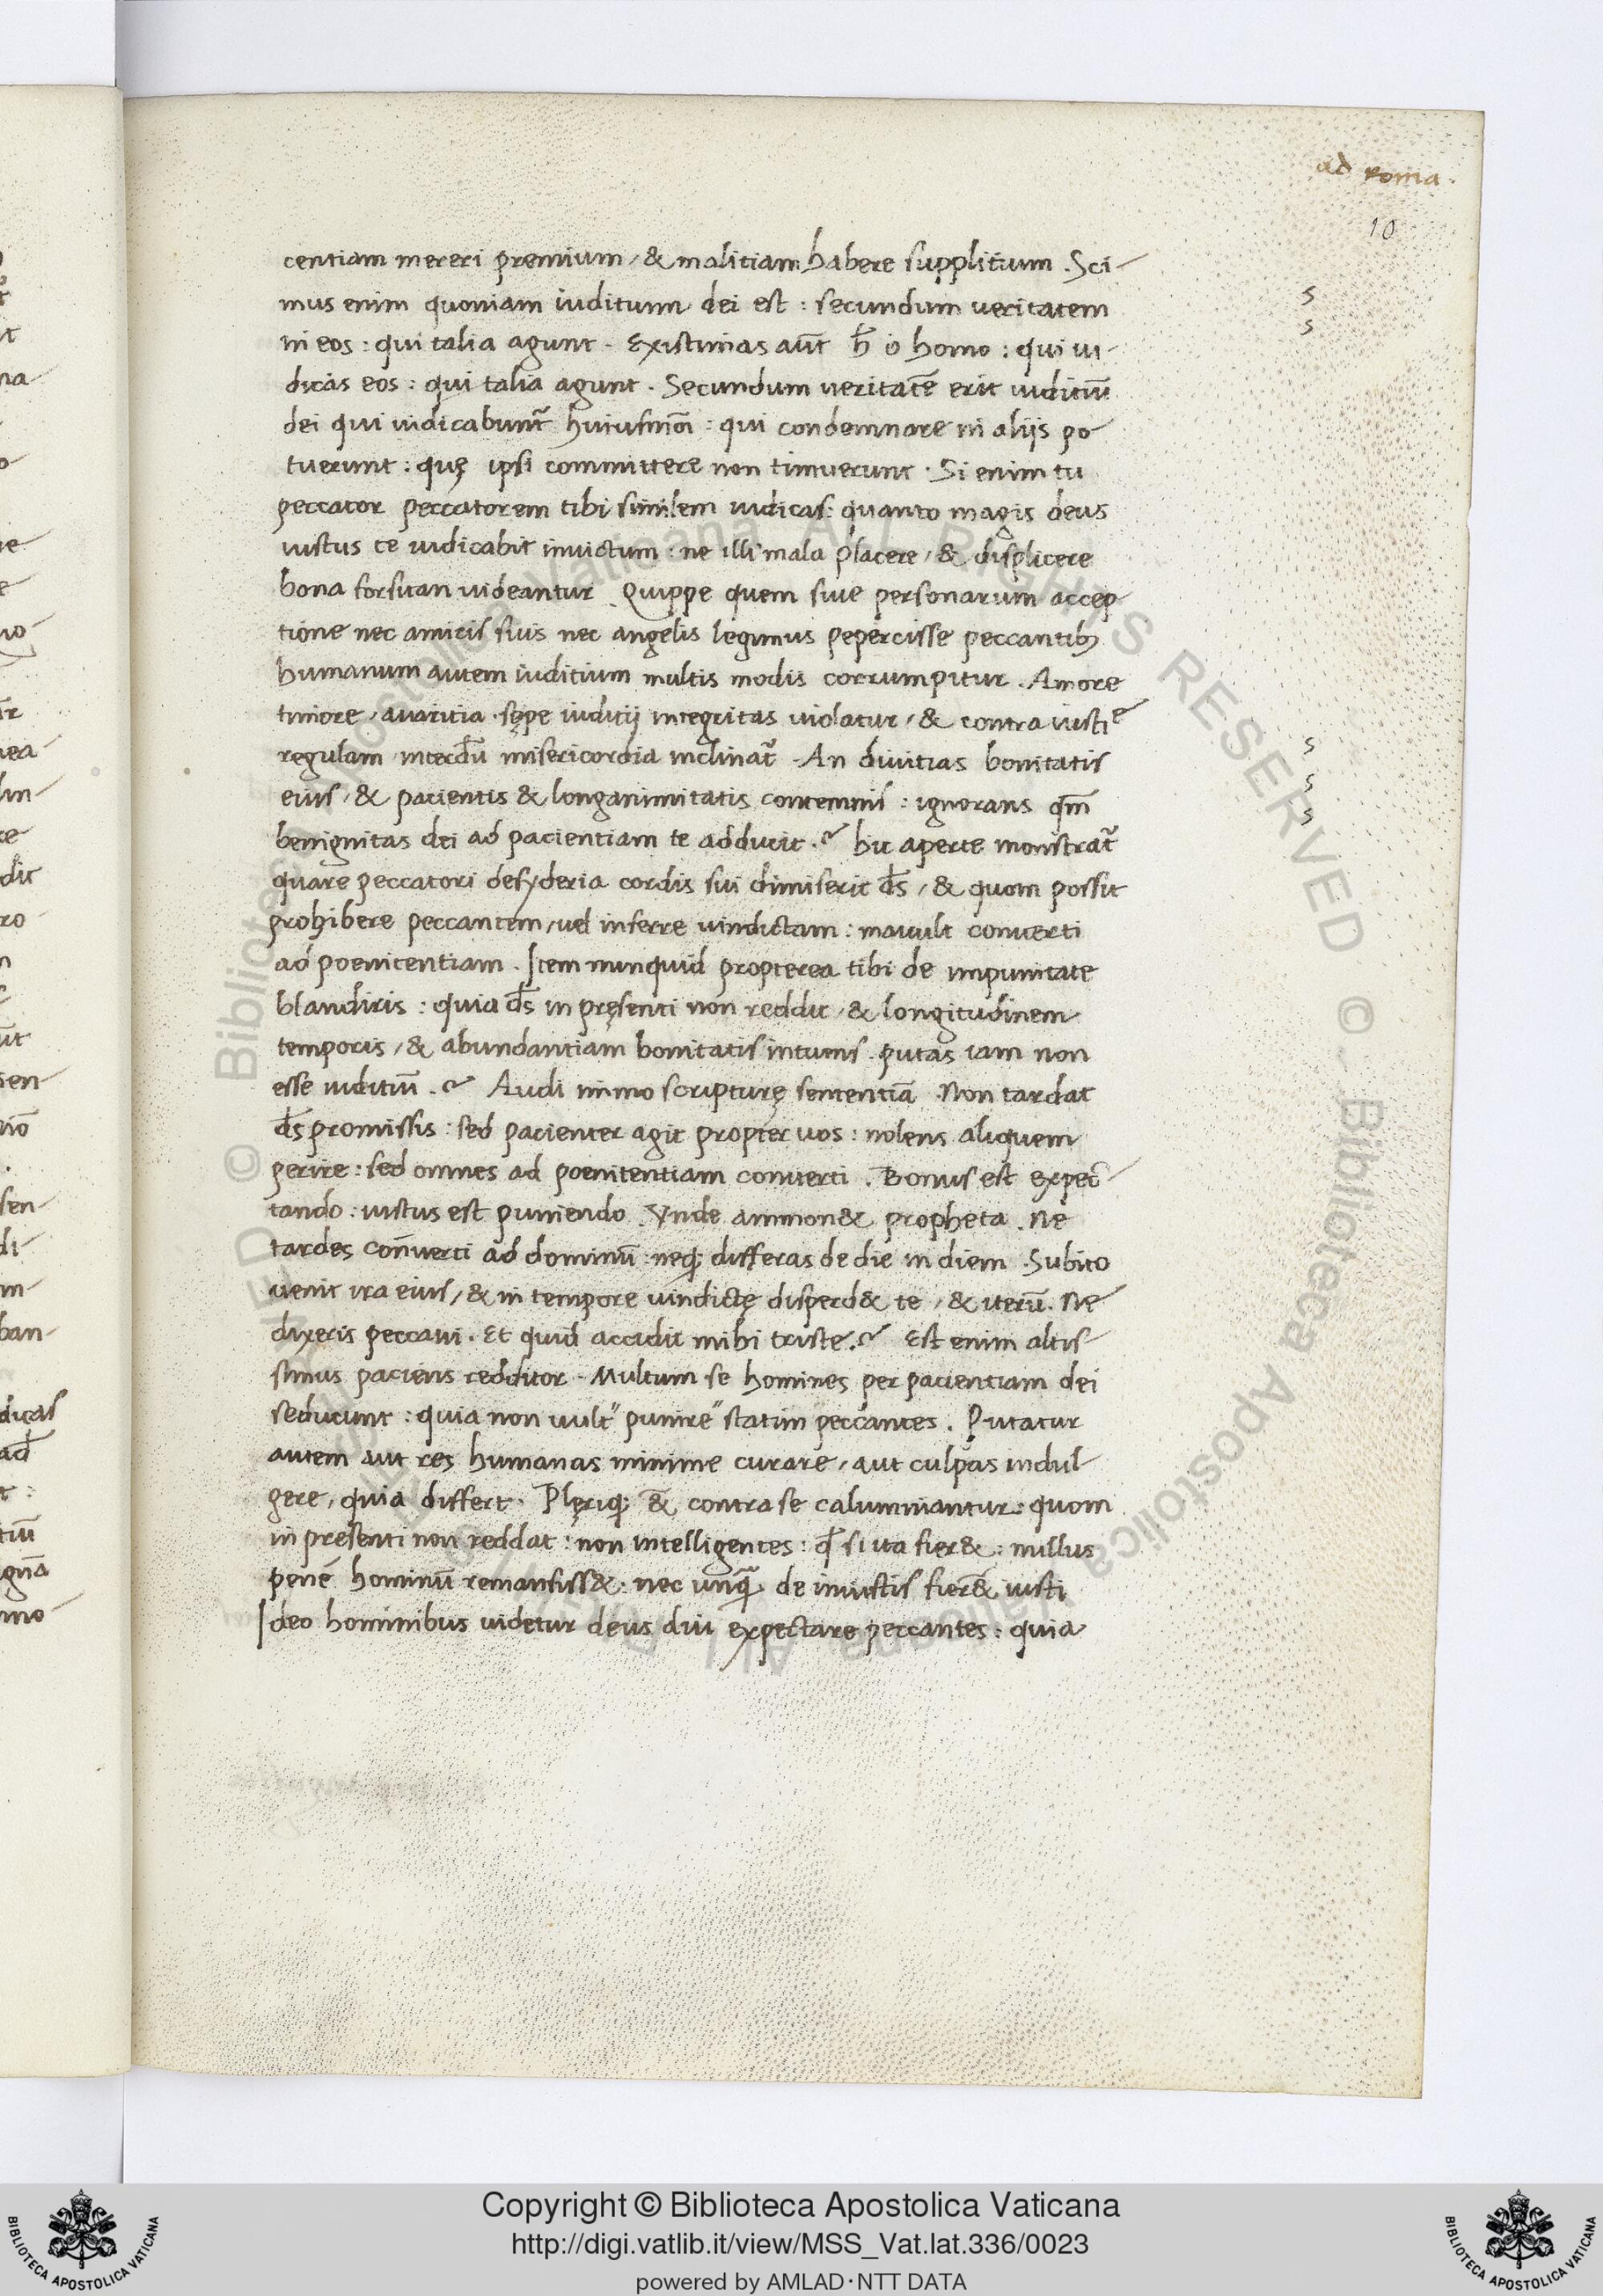 ad Roma.
10
centiam mereri premium, & malitiam habere supplitium. Sci-
mus enim quoniam iuditium dei est: secundum ueritatem
in eos: qui talia agunt. Existimas aut̄ h̄ o homo: qui iu-
dicas eos: qui talia agunt. Secundum ueritatē erit iuditiū
dei qui iudicabunt̄ huiusmōi: qui condemnare in aliis po-
tuerunt: quę ipsi committere non timuerunt. Si enim tu
peccator peccatorem tibi similem iudicas: quanto magis deus
iustus te iudicabit iniustum: ne illi mala placere, & displicere
bona forsitan uideantur. Quippe quem siue personarum accep-
tione nec amicis suis nec angelis legimus pepercisse peccantibꝫ
humanum autem iuditium multis modis corrumpitur. Amore
timore, auaritia. sępe iuditij integritas uiolatur, & contra iustię
regulam interdū misericordia inclinat̄. An diuitias bonitatis
eius, & pacientis & longanimitatis contemnis: ignorans qm̄
benignitas dei ad pacientiam te adducit.? hic aperte monstrat̄
quare peccatori desyderia cordis sui dimiserit d̄s, & quom possit
prohibere peccantem, uel inferre uindictam: mauult conuerti
ad poenitentiam. Item nunquid propterea tibi de impunitate
blandiris: quia d̄s in pręsenti non reddit, & longitudinem
temporis, & abundantiam bonitatis intuens. putas iam non
esse iuditiū.? Audi immo scripturę sententiā. Non tardat
d̄s promissis: sed pacienter agit propter uos: nolens aliquem
perire: sed omnes ad poenitentiam conuerti. Bonus est expec-
tando: iustus est puniendo. Vnde ammon& propheta. Ne
tardes conuerti ad dominū: neqꝫ differas de die in diem. Subito
uenit ira eius, & in tempore uindictę disperd& te, & iterū. Ne
dixeris peccaui. Et quid accidit mihi triste.? Est enim altis-
simus paciens redditor. Multum se homines per pacientiam dei
seducunt: quia non uult" punire" statim" peccantes. Putatur
autem aut res humanas minime curare, aut culpas indul-
gere, quia differt. Plęriqꝫ &̄ contra se calumniantur: quom
in presenti non reddat: non intelligentes: q̄ si ita fier&: nullus
penę hominū remansiss&: nec unq̄ de iniustis fier& iusti
Ideo hominibus uidetur deus diu expectare peccantes: quia
Copyright © Biblioteca Apostolica Vaticana
http://digi.vatlib.it/view/MSS_Vat.lat.336/0023
powered by AMLAD·NTT DATA
BIBLIOTECA APOSTOLICA VATICANA
BIBLIOTECA APOSTOLICA VATICANA